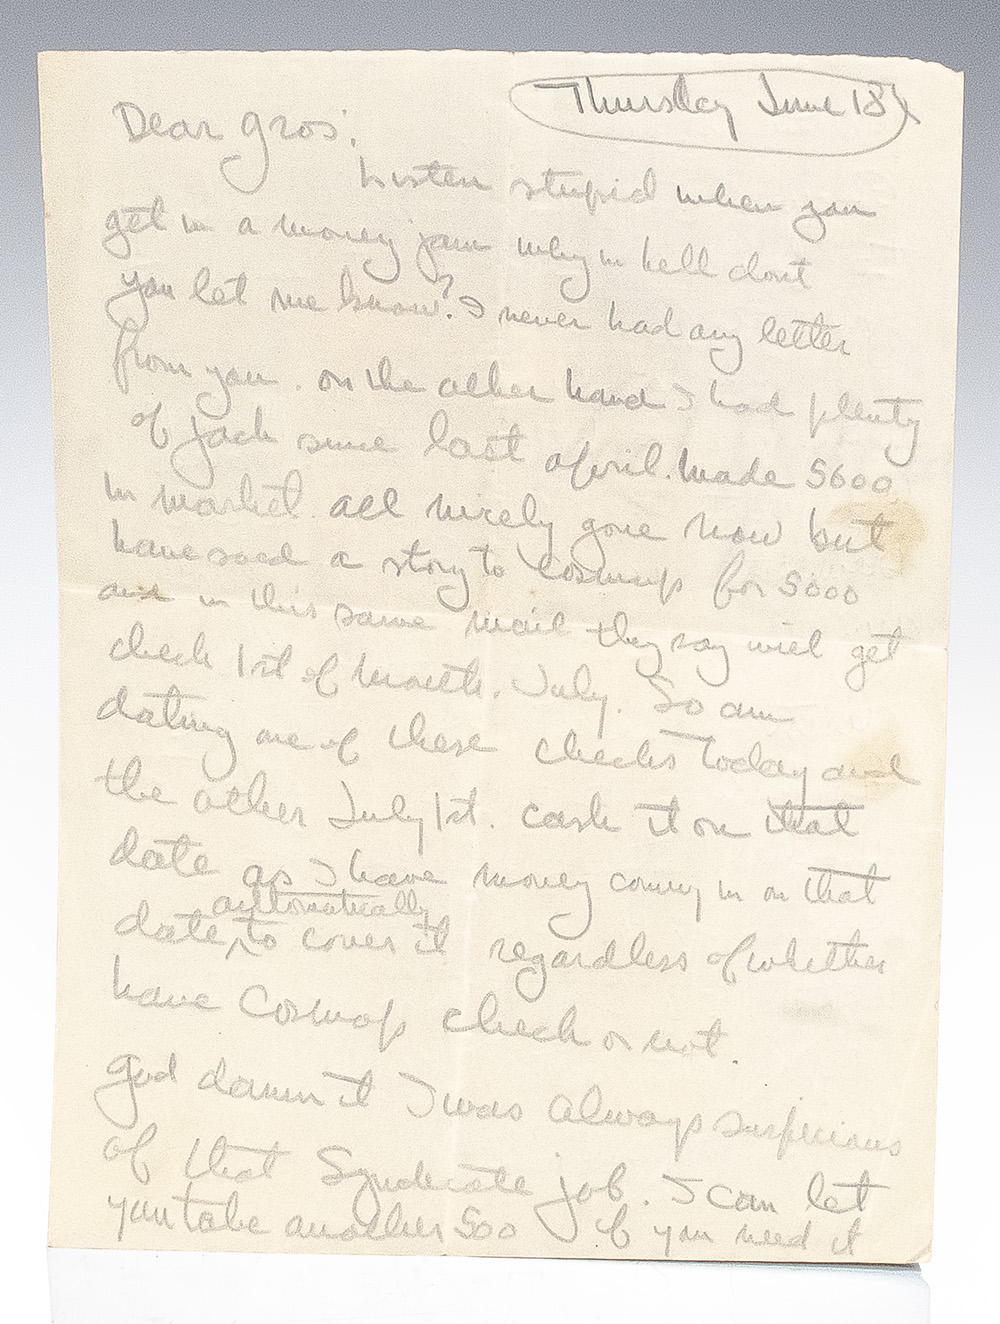 Thursday June 18
Dear Gros:
Listen stupid when you
get in a money jam why in hell dont
you let me know? I never had any letter
from you. on the other hand I had plenty
of jack since last april. Made 5600
in market. all nicely gone now but
have sold a story to Cosmop for 5000
and in this same mail they say will get
check 1st of month. July. So am
dating one of these checks today and
the other July 1st. cash it on that
date as I have money coming in on that
automatically
date, to cover it regardless of whether
have Cosmop check or not.
God damn it I was always suspicious
of that Syndicate job. I can let
you take another 500 if you need it